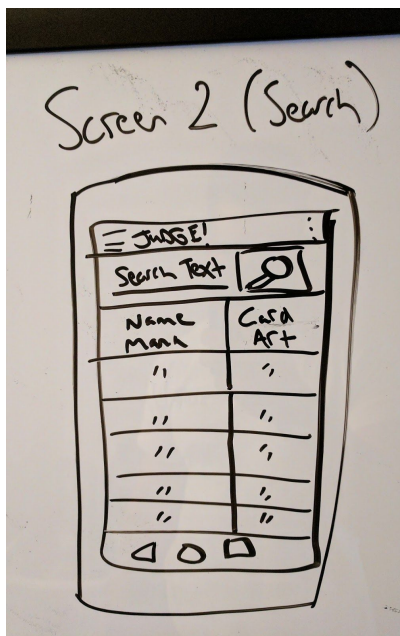 Screen 2 (Search)
JUDGE!
Search Text
Name Card
Mana Art
" "
" "
" "
" "
" "